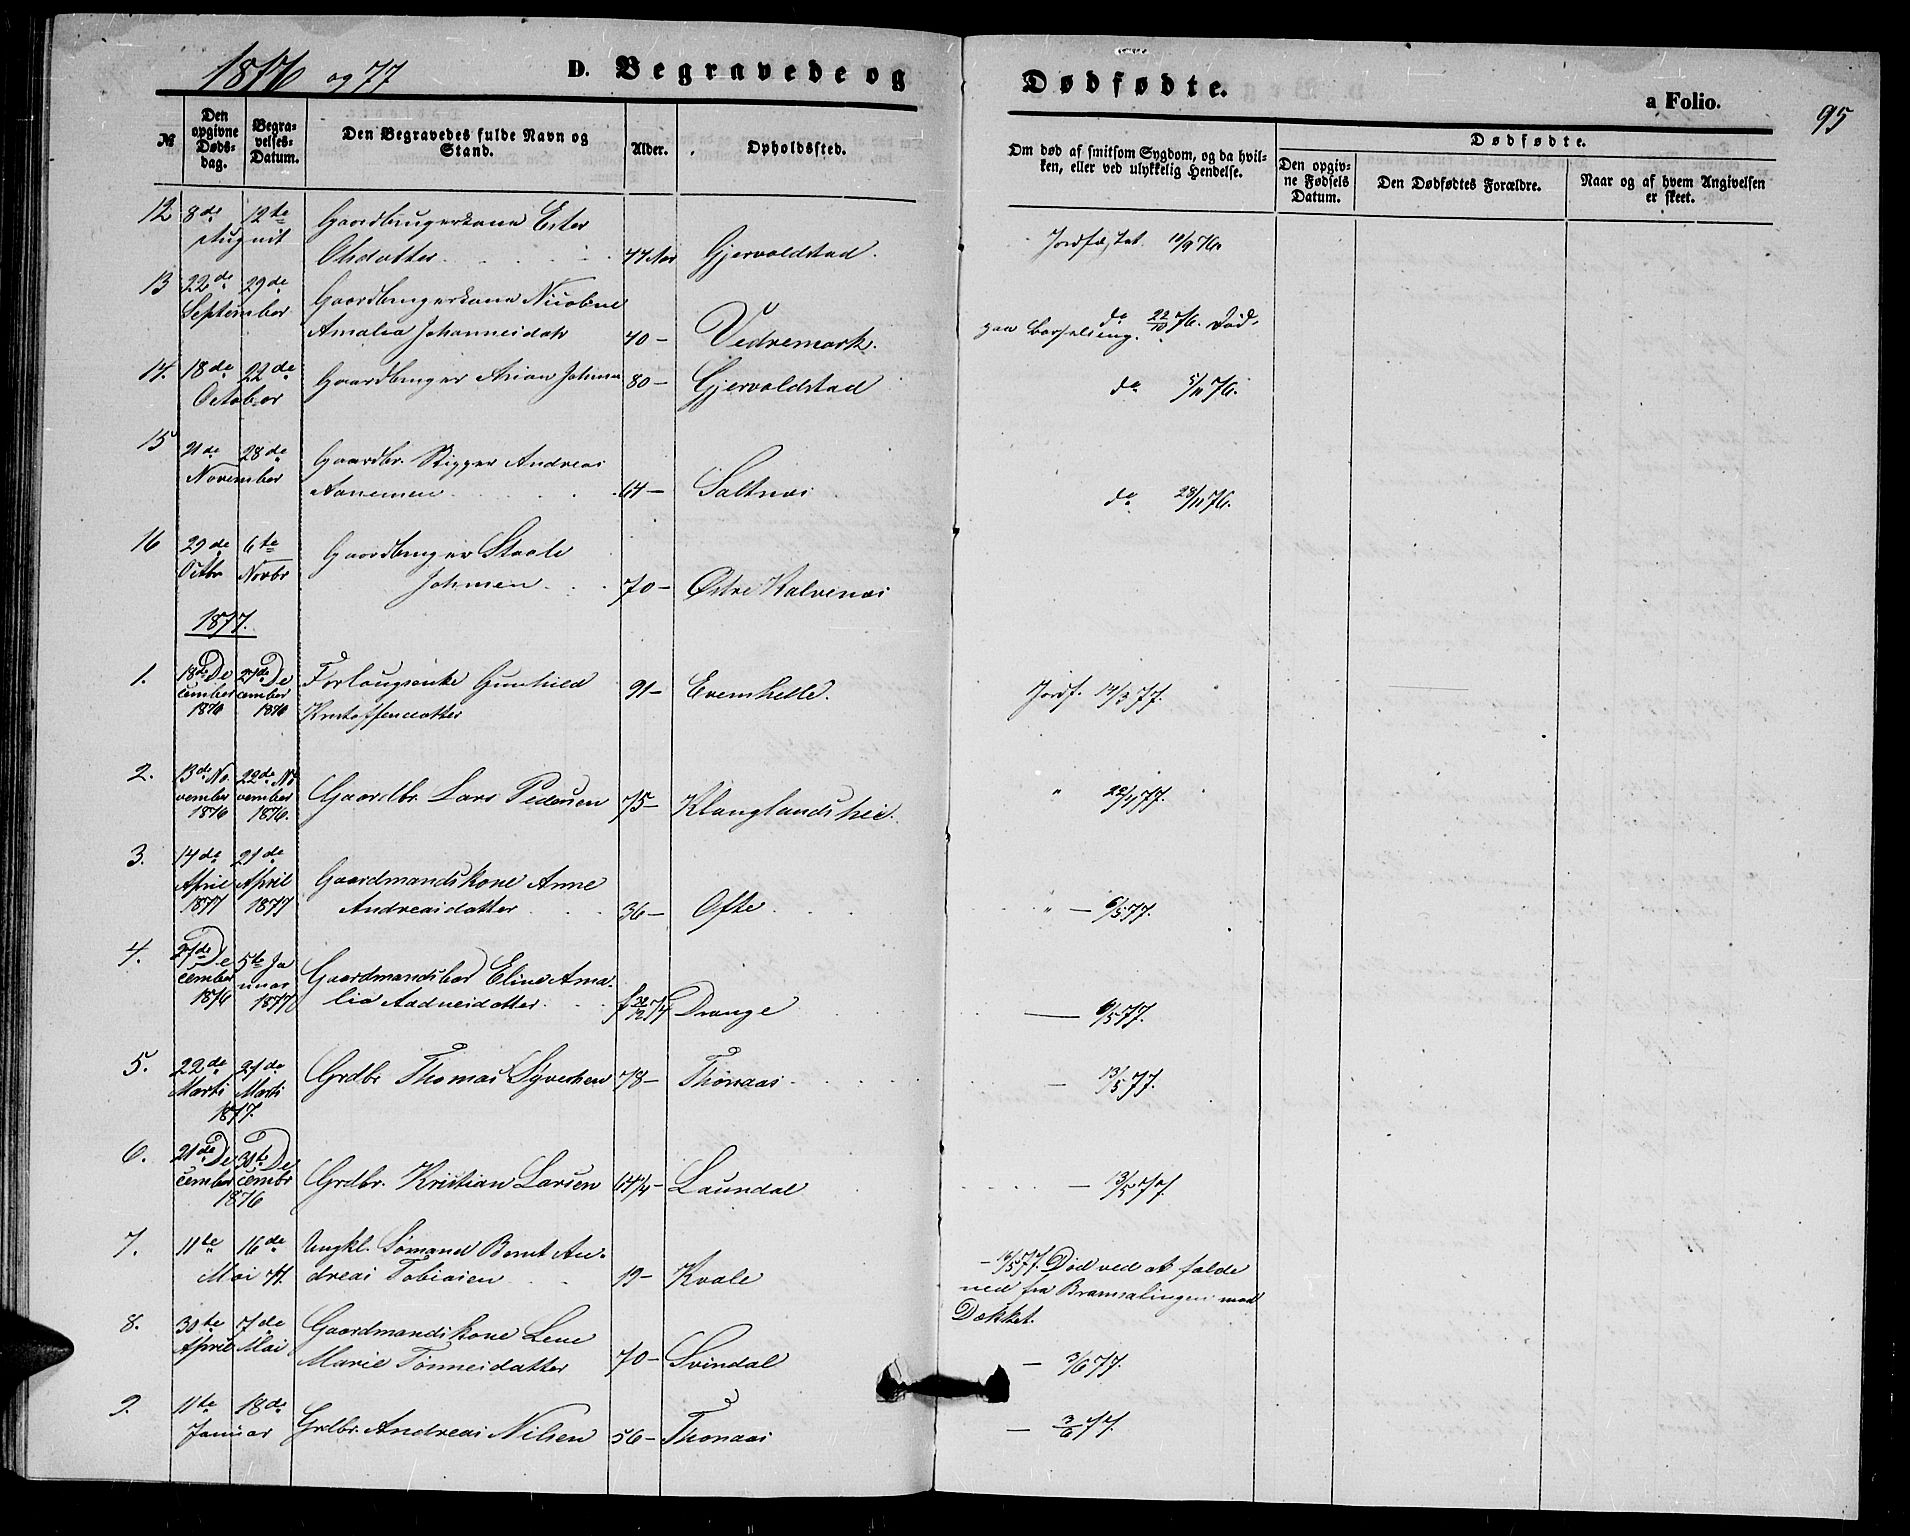 1876 og 77
D. Begravede og Dødfødte.
a Folio.
95
№
Den opgivne Dødsdag.
Begravelses-Datum.
Den Begravedes fulde Navn og Stand.
Alder.
Opholdssted.
Om død af smitsom Sygdom, og da hvilken, eller ved ulykkelig Hendelse.
Dødfødte.
Den opgivne Fødsels Datum.
Den Dødfødtes Forældre.
Naar og af hvem Angivelsen er skeet.
12 8de 12te Gaardbrugerkone Ester
August Olsdatter 47 Aar Gjervoldstad. Jordfæstet 10/9 76.
13 22de 29de Gaardbrugerkone
September Amalia Johannesdatr 40 – Vedremark. do 22/10 76. Død
paa Barselseng.
14. 18de 22de Gaardbruger Johnsen 80 – Gjervoldstad do 5/11 76.
October
15 21de 28de Gaardbr. Rigger Andreas
November Aanensen 64 – Saltnes do 28/11 76.
16 29de 6te Gaardbruger Staale
Octbr Novbr Johnsen 70 – Østre Kalvenes
1877.
1. 18de De 27de De Forlougsenke Gunhild 91 – Evenshelle. Jordf. 14/3 77.
cember cember Kristoffersdatter
1876 1876
2. 13de No 22de No
vember vember Gaardbr. Lars Pedersen 75 – Klunglandsheie. " 22/4 77.
1876 1876.
3. 14de 21de
April April Gaardmandskone Anne
1877 1877 Andreasdatter 36 – Ofte " – 6/5 77.
4. 27de De 5te Ja
cember nuar Gaardmandsbar Eline Ama
1876 1877 lia Aadnesdatter f /12 74 Drange – 6/5 77.
5. 22de 27de Grdbr Thomas Syvertsen 78 – Thonaas – 13/5 77.
Marts Marts
1877.
6. 21de De 30te De
cember cembr Grdbr. Kristian Larsen 64 3/4 – Laundal – 13/5 77.
1876
7. 11te 16de Ungkl. Sømand Bernt An
Mai 77. dreas Tobiasen 19 – Kvale – 16/5 77. Død ved at falde
ned fra Bramsalingen mod
Dækket.
8. 30te 7de Gaardmandskone Lene
April Mai Marie Tønnesdatter 70 – Svindal – 3/6 77.
9. 11te 18de Grdbr. Andreas Nilsen 56 – Thonaas – 3/6 77.
Januar